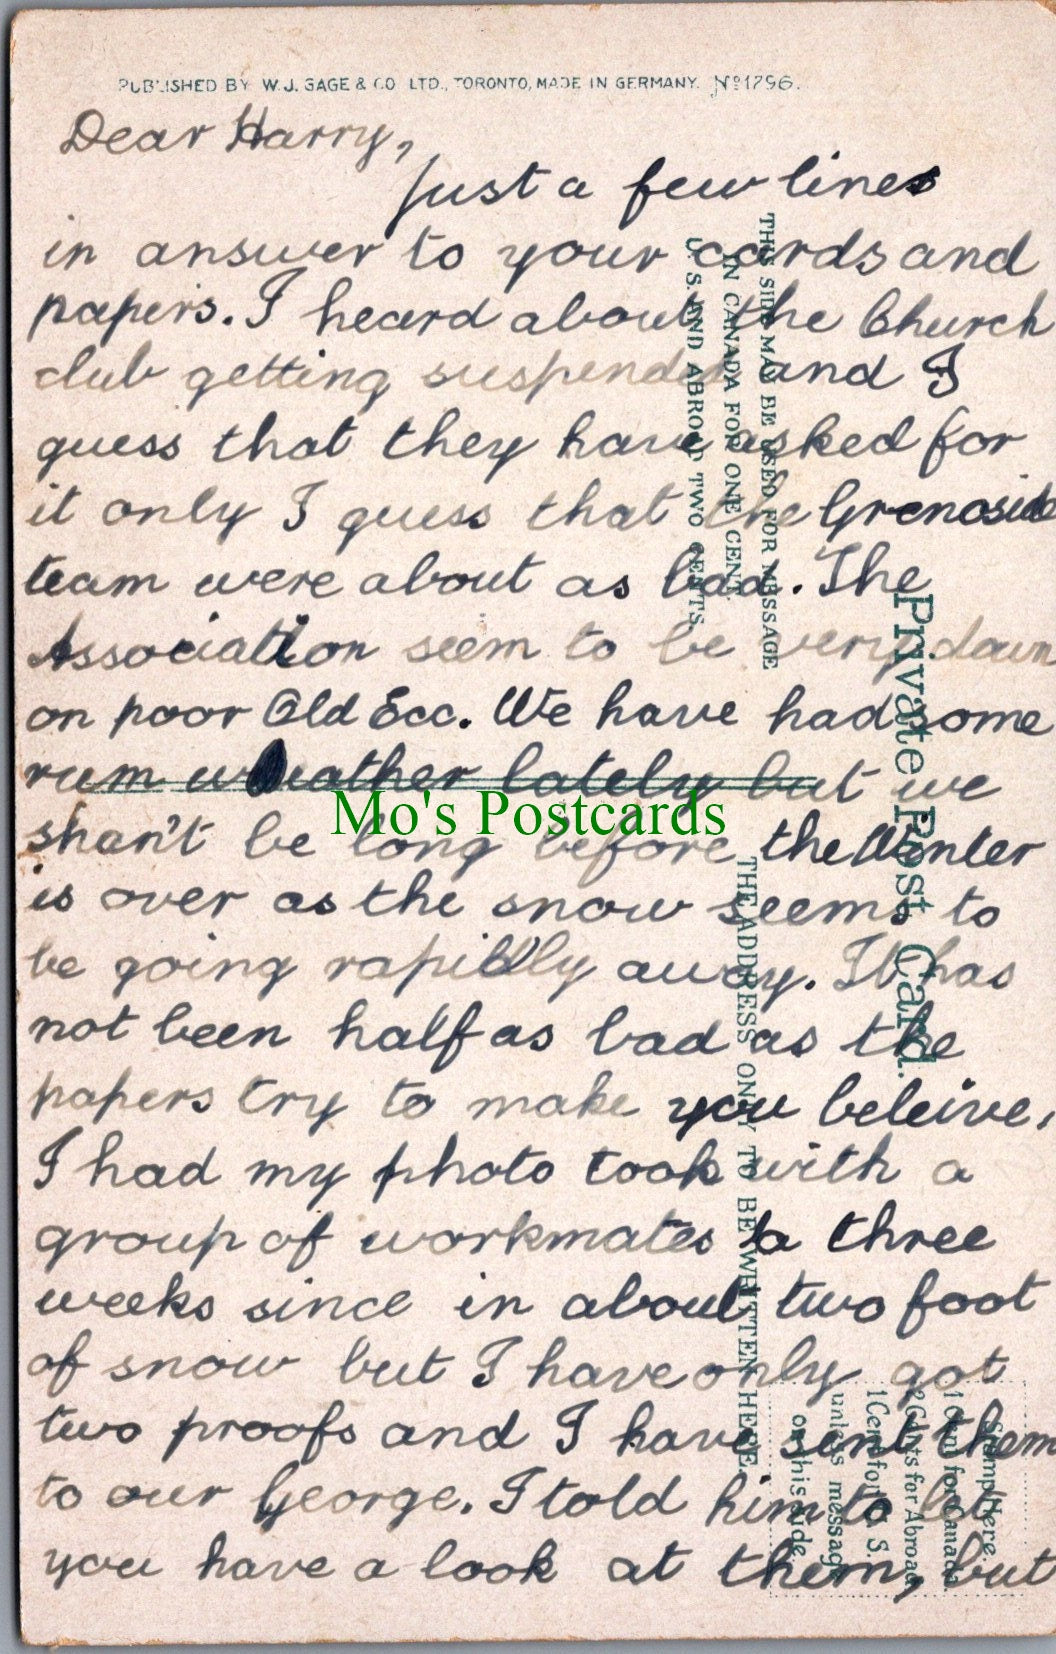 PUBLISHED BY W.J. GAGE & CO LTD., TORONTO, MADE IN GERMANY. No 1796.
Dear Harry,
just a few lines
in answer to your cards and
papers. I heard about the Church
club getting suspended and I
guess that they have asked for
it only I guess that the Grenoside
team were about as bad. The
Association seem to be very down
on poor Old Ecc. We have had some
rum weather lately but we
shan't be long before the Winter
is over as the snow seems to
be going rapidly away. It has
not been half as bad as the
papers try to make you beleive.
I had my photo took with a
group of workmates a three
weeks since in about two foot
of snow but I have only got
two proofs and I have sent them
to our George. I told him to let
you have a look at them, but
Mo's Postcards
Private Post Card.
THIS SIDE MAY BE USED FOR MESSAGE
IN CANADA FOR ONE CENT.
U.S. AND ABROAD TWO CENTS.
THE ADDRESS ONLY TO BE WRITTEN HERE.
Stamp Here.
1 Cent for Canada
2 Cents for Abroad
1 Cent for U.S.
unless message
on this side.